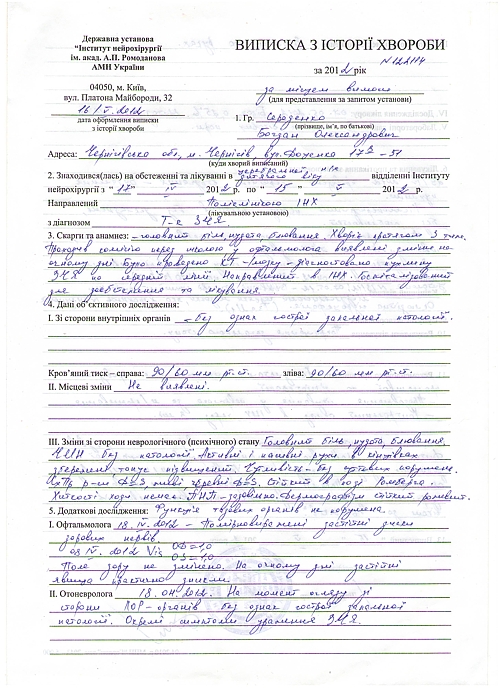 Державна установа
“Інститут нейрохірургії
ім. акад. А.П. Ромоданова
АМН України
ВИПИСКА З ІСТОРІЇ ХВОРОБИ
за 2012 рік
04050, м. Київ,
вул. Платона Майбороди, 32
за місцем вимоги
(для представлення за запитом установи)
16/V. 2012
дата оформлення виписки
з історії хвороби
1. Гр. Середенко
(прізвище, ім’я, по батькові)
Богдан Олександрович
Адреса: Чернігівська обл., м. Чернігів, вул. Доценка 17 -51
(куди хворий виписаний)
2. Знаходився(лась) на обстеженні та лікуванні в дитячого віку відділенні Інституту
нейрохірургії з “17” IV 2012 р. по “15” V 2012 р.
Направлений Поліклінікою ІНХ
(лікувальною установою)
з діагнозом
3. Скарги та анамнез: -головний біль, нудота, блювання. Хворіє протягом 3
Проходив комісію перед школою у офтальмолога виявлені зміни на
очному дні. Було проведено КТ -мозку -діагностовано пухлину
ЗЧЯ по середній лінії. Направлений в ІНХ. Госпіталізований
для дообстеження та лікування.
4. Дані об’єктивного дослідження:
І. Зі сторони внутрішніх органів -без ознак гострої запальної патології.
Кров’яний тиск – справа: 90/60 мм рт.ст. зліва: 90/60 мм рт.ст.
ІІ. Місцеві зміни Не виявлені.
ІІІ. Зміни зі сторони неврологічного (психічного) стану Головний біль, нудота, блювання.
ЧМН без патології. Активні і пасивні рухи в кінцівках
збережені, тонус підвищений. Чутливість - без суттєвих порушень.
D=S, живі, черевні D=S. Стійкий в позі Ромберга.
Хиткості ходи немає. ПНП -задовільно. Дермографізм стійкий рожевий.
5. Додаткові дослідження: Функція тазових органів не порушена.
І. Офтальмолога 18. IV. 2012 - Помірновиражені застійні диски
зорових нервів.
08 IV. 2012 Vis OD=1,0
OS=1,0
Поле зору не змінено. На очному дні застійні
явища практично зникли.
ІІ. Отоневролога 18.04.2012. На момент огляду зі
сторони ЛОР-органів без ознак гострої запальної
патології. Окремі симптоми ураження ЗЧЯ.